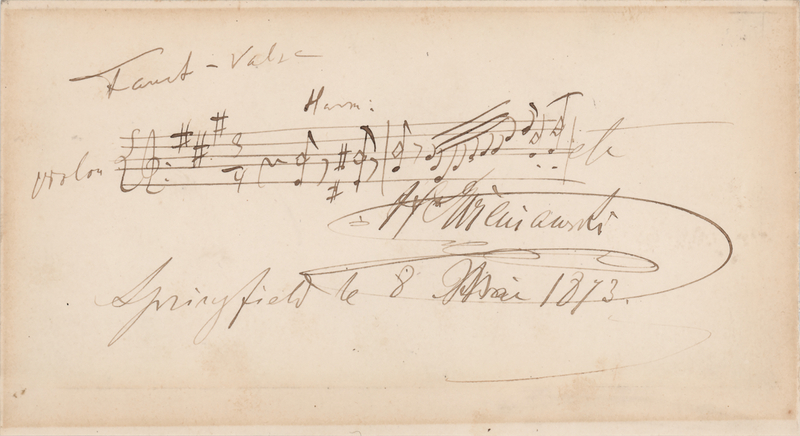 Faust - Valse
Harm:
violon
3
4
etc
H. Wieniawski
Springfield le 8 Mai 1873.